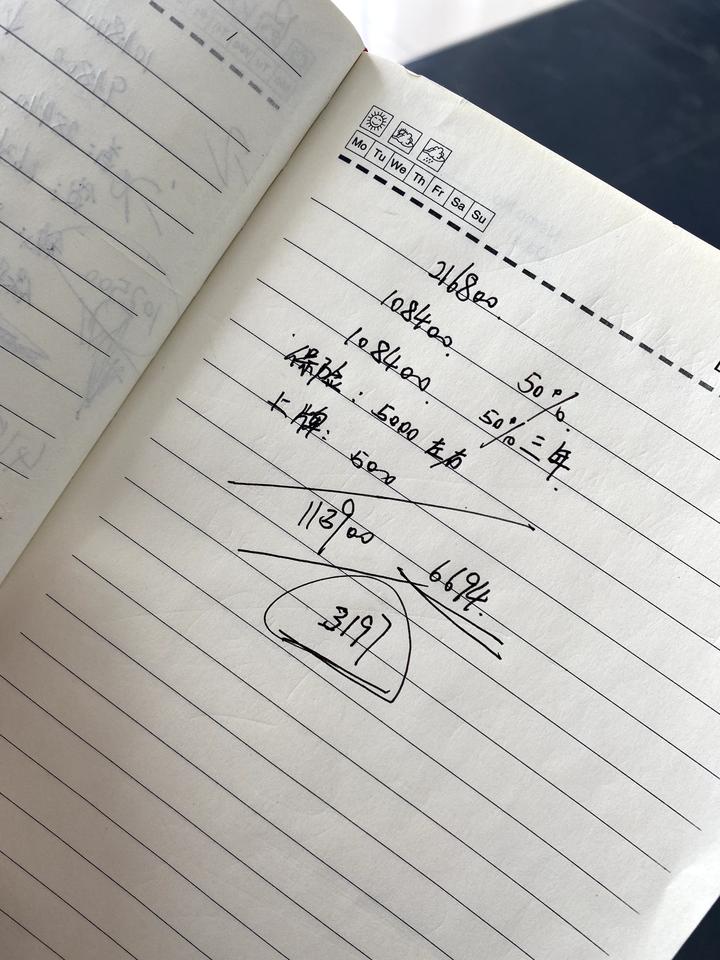 Mo Tu We Th Fr Sa Su
216800.
108400. 50%.
108400. 50%三年.
保险: 5000左右
上牌: 500
113900
6694.
3197